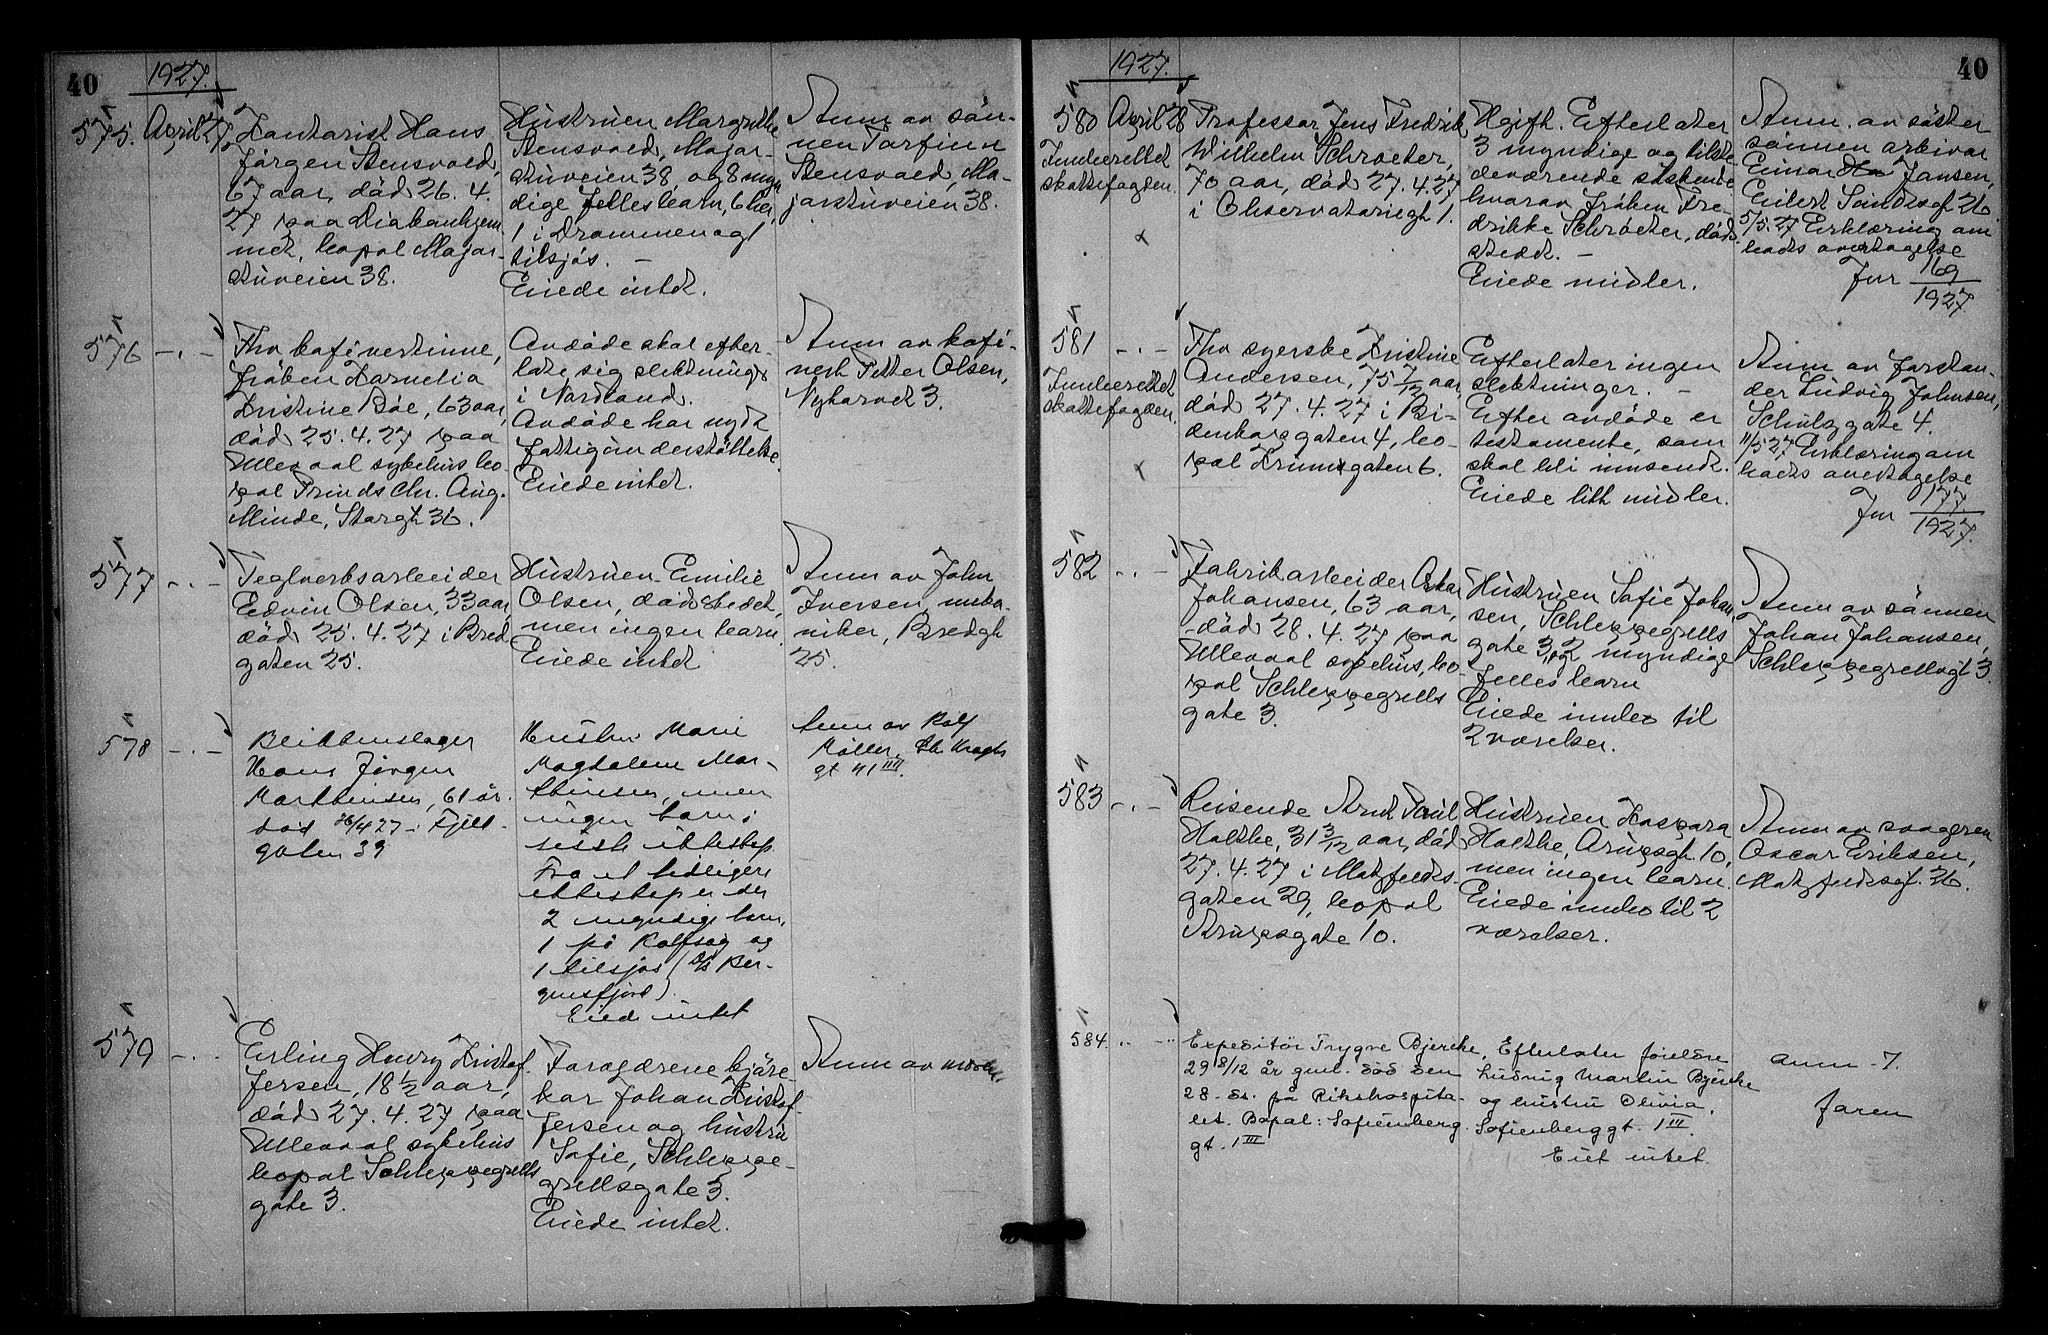 40
1927.
575. April 27.
Kontorist Hans
Jørgen Stensvold,
67 aar, död 26. 4.
27 paa Diakonhjem
met, bopal Major-
stuveien 38.
Hustruen Margrethe
Stensvold, Major-
stuveien 38 og 8 myn
dige felles barn, 6 her,
1 i Drammen og 1
tilsjøs. —
Eiede intet.
Anm. av søn-
nen Torfinn
Stensvold, Ma-
jorstuveien 38.
576 — . —
Fhv. kafévertinne,
fröken Kornelia
Kristine Böe, 63 aar,
död 25. 4. 27 paa
Ullevaal sykehus bo-
pal Prinds Chr. Aug.
Minde, Storgt 36.
Avdöde skal efter-
late sig slektninger
i Nordland.
Avdöde har nydt
fattigunderstöttelse.
Eiede intet.
Anm av kafé-
vert Petter Olsen,
Nyharvet 3.
577 — . —
Teglverksarbeider
Edvin Olsen, 33 aar
död 25. 4. 27 i Bred
gaten 25.
Hustruen Emilie
Olsen, dödsstedet,
men ingen barn.
Eiede intet
Anm av John
Iversen, meka-
niker, Bredgt
25.
578 — . —
Blikkenslager
Hans Jörgen
Marthinsen, 61 år.
död 26/4 27 i Fjell-
gaten 39
Hustru Marie
Magdalene Mar-
thinsen, men
ingen barn i
siste ekteskap
Fra et tidligere
ekteskap er der
2 myndige barn,
1 på Kolfsog og
1 tilsjøs (D/S Ber-
gensfjord).
Eied intet
Anm av Rolf
Möller, Kraghs
gt 41 III.
579 — . .
Erling Henry Kristof
fersen, 18 1/2 aar,
död 27. 4. 27 paa
Ullevaal sykehus
bopal Schleppegrells
gate 3.
Foreldrene kjøre-
kar Johan Kristof-
fersen og hustru
Sofie, Schleppe-
grellsgate 3.
Eiede intet.
Anm av moren.
40
1927.
580 April 28
Innberettet
skattefogden.
x
Professor Jens Fredrik
Wilhelm Schroeter,
70 aar, död 27. 4. 27
i Observatoriegt 1.
Ugift. Efterlater
3 myndige og tilste
deværende söskende
hvorav fröken Fre-
drikke Schroeter, döds-
stedet. —
Eiede midler.
Anm. av söster
sönnen arkivar
Einar Jansen,
Eilert Sundtsgt 26
5/5. 27 Erklæring om
boets overtagelse
Jnr 169
1927
581 — . —
Innberettet
skattefogden
x
Fhv syerske Kristine
Andersen, 75 7/12 aar,
död 27. 4. 27 i Bi-
denkapsgaten 4, bo-
pal Krumsgaten 6.
Efterlater ingen
slektninger. —
Efter avdöde er
testamente, som
skal bli innsendt.
Eiede litt midler.
Anm av forstan-
der Ludvig Johnsen,
Schulzgate 4.
11/5 27 Erklæring om
boets overtagelse
Jnr 177
1927
582 — . —
Fabrikarbeider Oskar
Johansen, 63 aar,
död 28. 4. 27 paa
Ullevaal sykehus, bo-
pal Schleppegrells
gate 3.
Hustruen Sofie Johan
sen, Schleppegrells
gate 3, og 2 myndige
felles barn
Eiede innbo til
2 værelser.
Anm av sönnen
Johan Johansen,
Schleppegrellsgt 3.
583 — . —
Reisende Arnt Paul
Holthe, 31 3/12 aar, död
27. 4. 27 i Motzfeldts
gaten 29, bopal
Arupsgate 10.
Hustruen Kaspara
Holthe, Arupsgt. 10,
men ingen barn.
Eiede innbo til 2
værelser.
Anm av svogeren
Oscar Eriksen,
Motzfeldtsgt. 26.
584 .. — ..
Expeditör Trygve Bjercke,
29 8/12 år gml. död den
28. ds. på Rikshospita-
let. Bopal: Sofienberg
gt. 1 III
Efterlater foreldre
Ludvig Martin Bjercke
og hustru Olivia,
Sofienberggt. 1 III.
Eiet intet.
Anm. 7.
faren